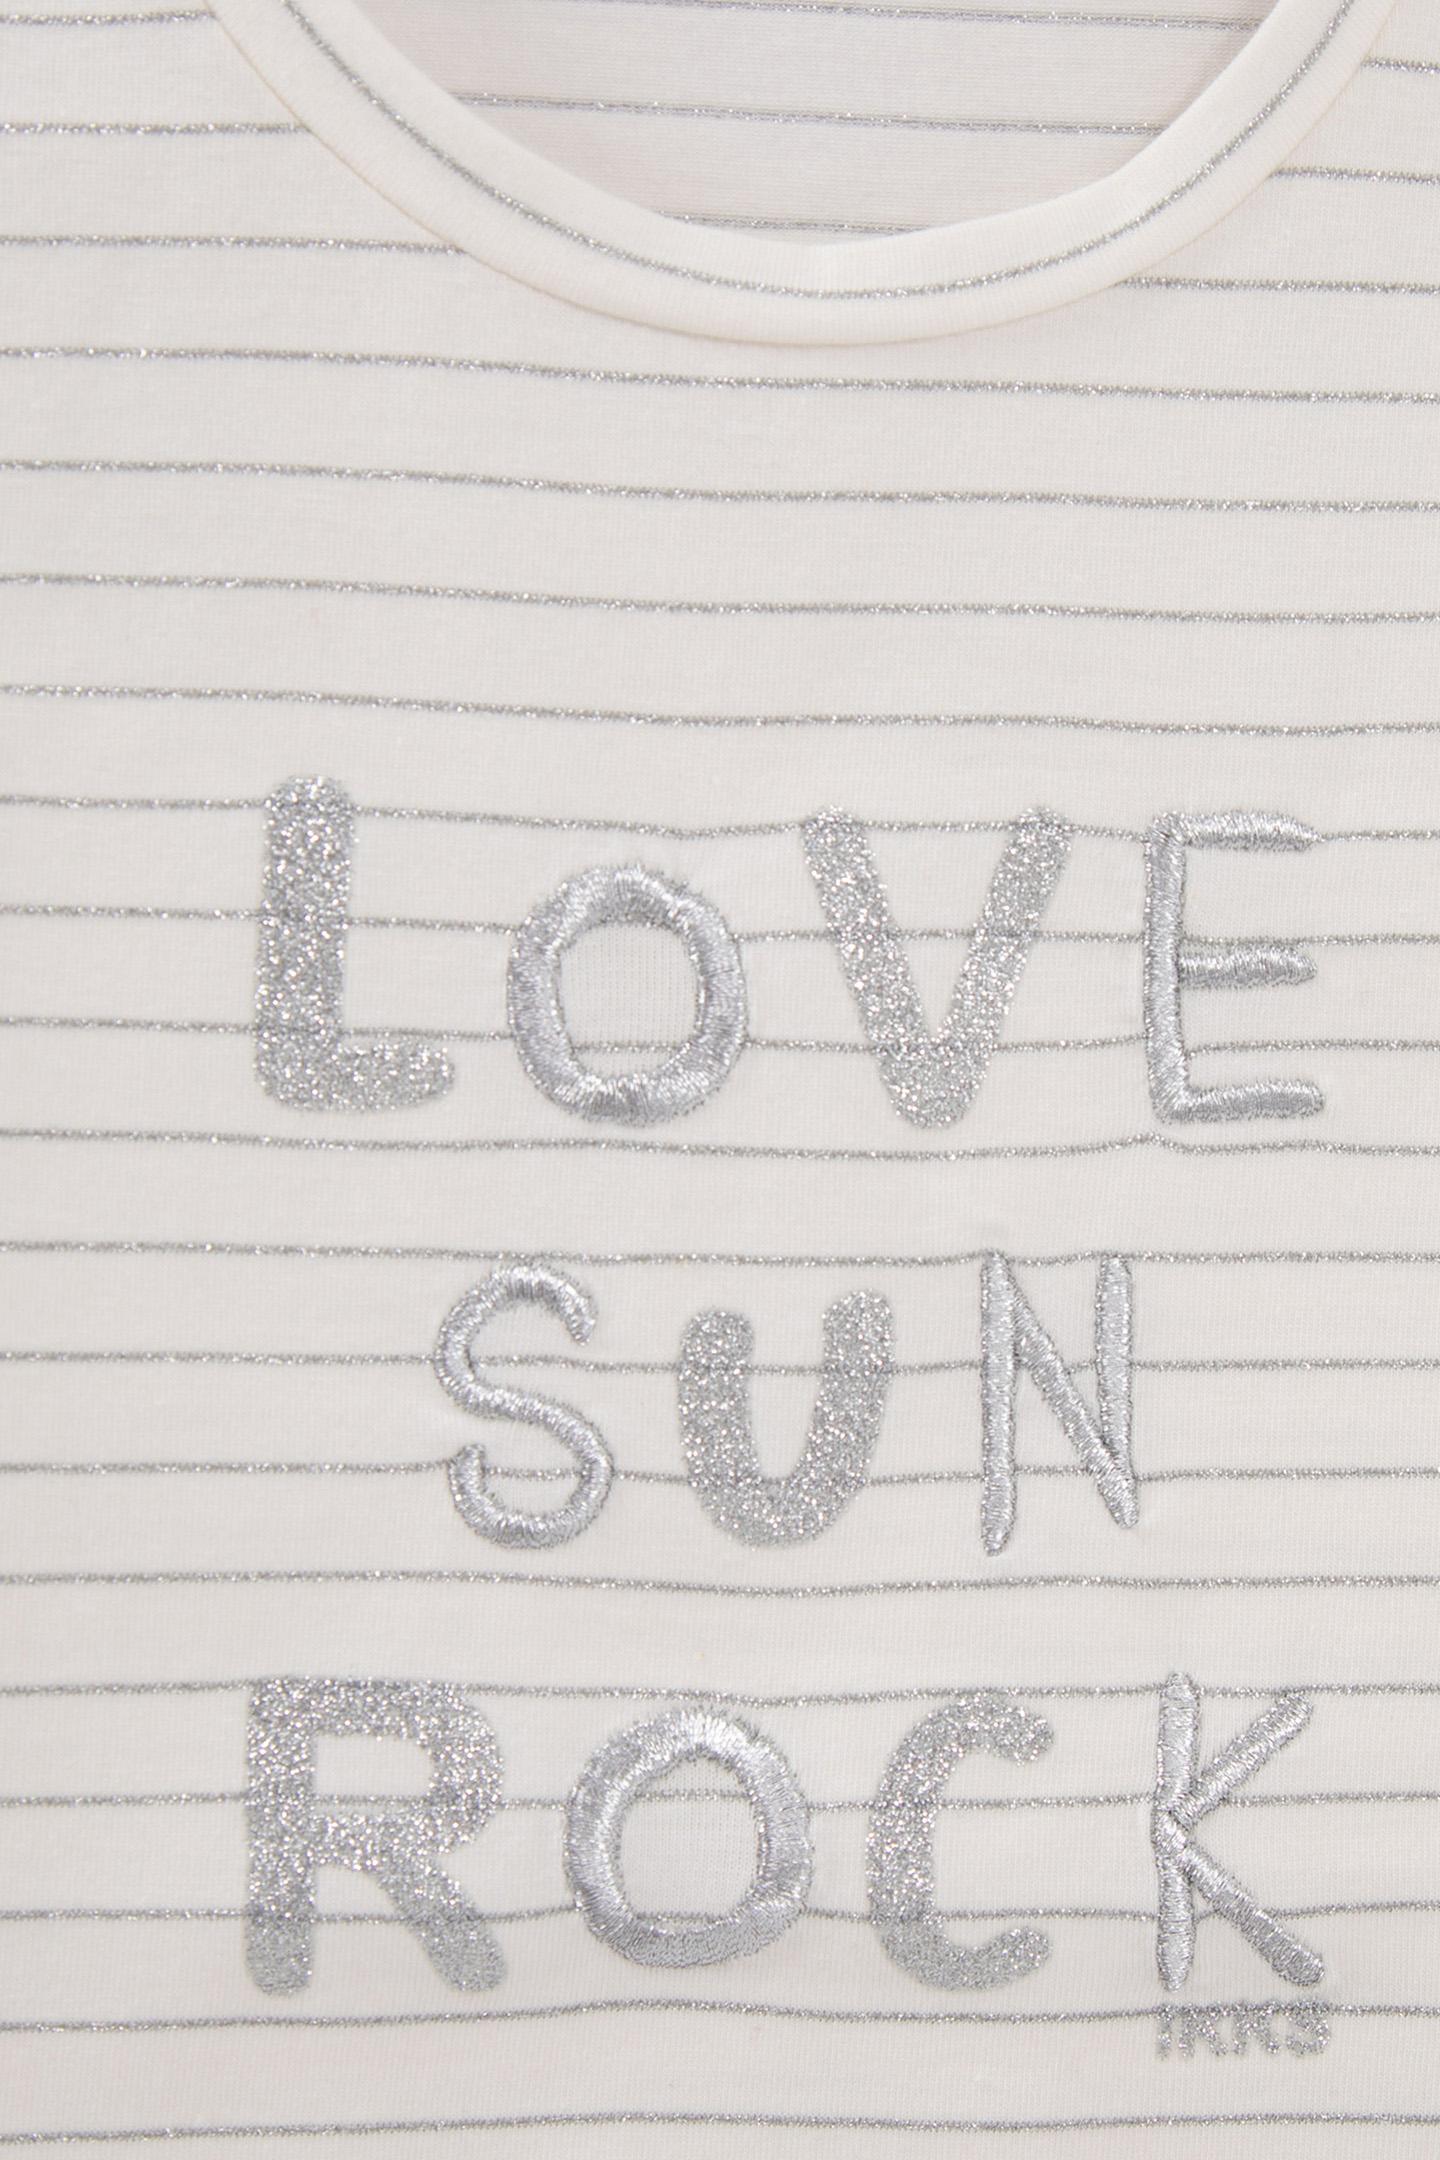 LOVE
SUN
ROCK
IKKS